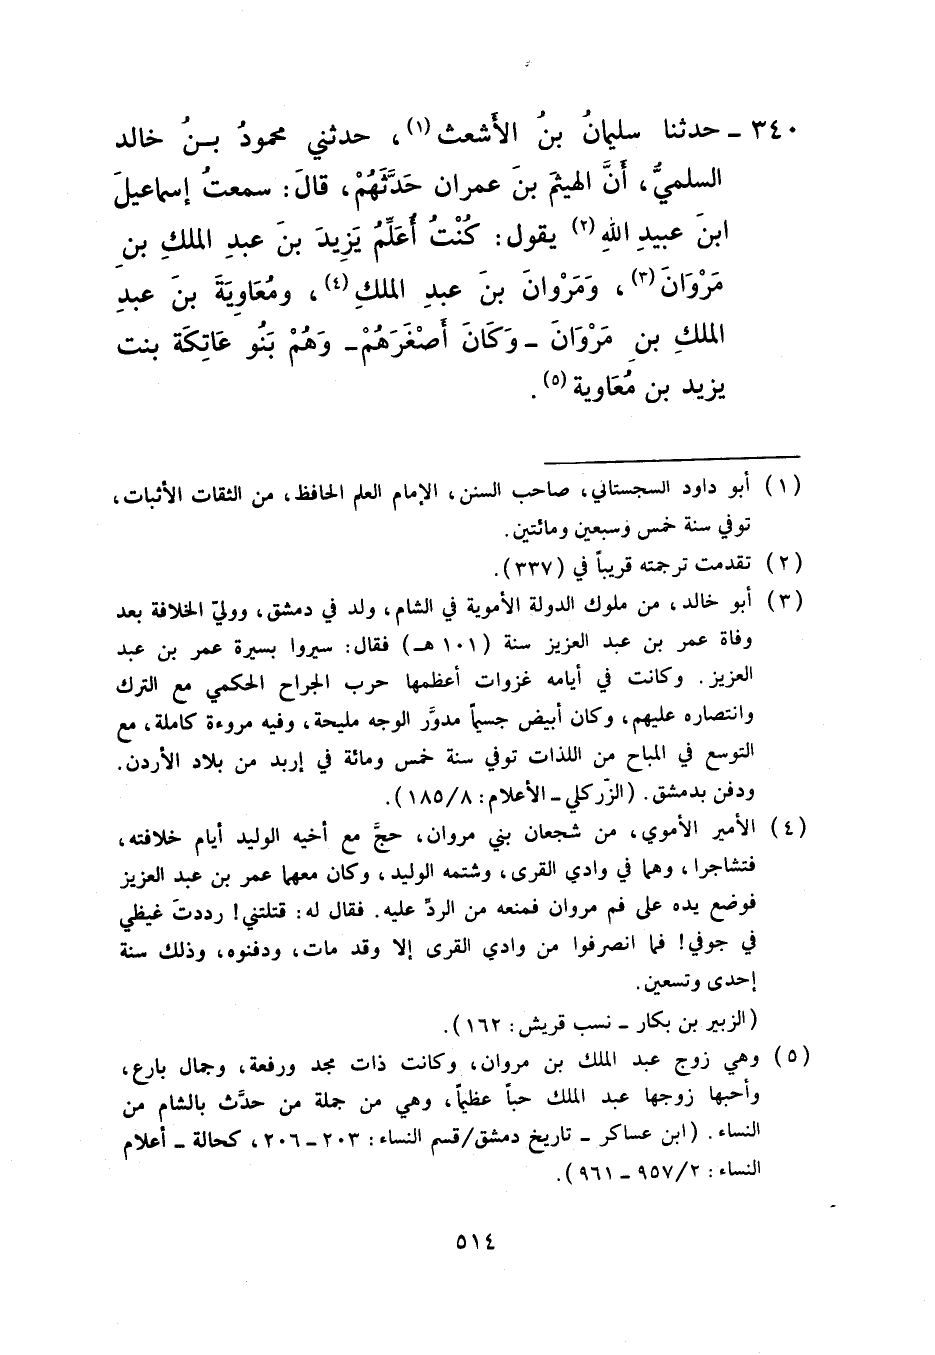 ٣٤٠ ـ حدثنا سليمانُ بنُ الأَشعث(١)، حدثني محمودُ بـنُ خالد
السلميُّ، أَنَّ الهيثمَ بنَ عمران حَدَّثَهُمْ، قالَ: سمعتُ إسماعيلَ
ابنَ عبيدِ اللهِ(٢) يقول: كُنْتُ أُعَلِّمُ يَزِيدَ بنَ عبدِ الملكِ بنِ
مَرْوَانَ(٣)، وَمَرْوانَ بنَ عبدِ الملكِ(٤)، ومُعَاوِيَةَ بنَ عبدِ
الملكِ بنِ مَرْوَانَ ـ وَكَانَ أَصْغَرَهُمْ ـ وَهُمْ بَنُو عَاتِكَة بنت
يزيد بن مُعَاوية(٥).
(١) أبو داود السجستاني، صاحب السنن، الإمام العلم الحافظ، من الثقات الأثبات،
توفي سنة خمس وسبعين ومائتين.
(٢) تقدمت ترجمته قريباً في (٣٣٧).
(٣) أبو خالد، من ملوك الدولة الأموية في الشام، ولد في دمشق، ووليّ الخلافة بعد
وفاة عمر بن عبد العزيز سنة (١٠١ هـ) فقال: سيروا بسيرة عمر بن عبد
العزيز. وكانت في أيامه غزوات أعظمها حرب الجراح الحكمي مع الترك
وانتصاره عليهم، وكان أبيض جسيماً مدوَّر الوجه مليحة، وفيه مروءة كاملة، مع
التوسع في المباح من اللذات توفي سنة خمس ومائة في إربد من بلاد الأردن.
ودفن بدمشق. (الزّركلي ـ الأعلام: ١٨٥/٨).
(٤) الأمير الأموي، من شجعان بني مروان، حجَّ مع أخيه الوليد أيام خلافته،
فتشاجرا، وهما في وادي القرى، وشتمه الوليد، وكان معهما عمر بن عبد العزيز
فوضع يده على فم مروان فمنعه من الردِّ عليه. فقال له: قتلتني! رددتَ غيظي
في جوفي! فما انصرفوا من وادي القرى إلا وقد مات، ودفنوه، وذلك سنة
إحدى وتسعين.
(الزبير بن بكار ـ نسب قريش: ١٦٢).
(٥) وهي زوج عبد الملك بن مروان، وكانت ذات مجد ورفعة، وجمال بارع،
وأحبها زوجها عبد الملك حباً عظيماً، وهي من جملة من حدَّث بالشام من
النساء. (ابن عساكر ـ تاريخ دمشق/قسم النساء: ٢٠٣ ـ ٢٠٦، كحالة ـ أعلام
النساء: ٩٥٧/٢ ـ ٩٦١).
٥١٤